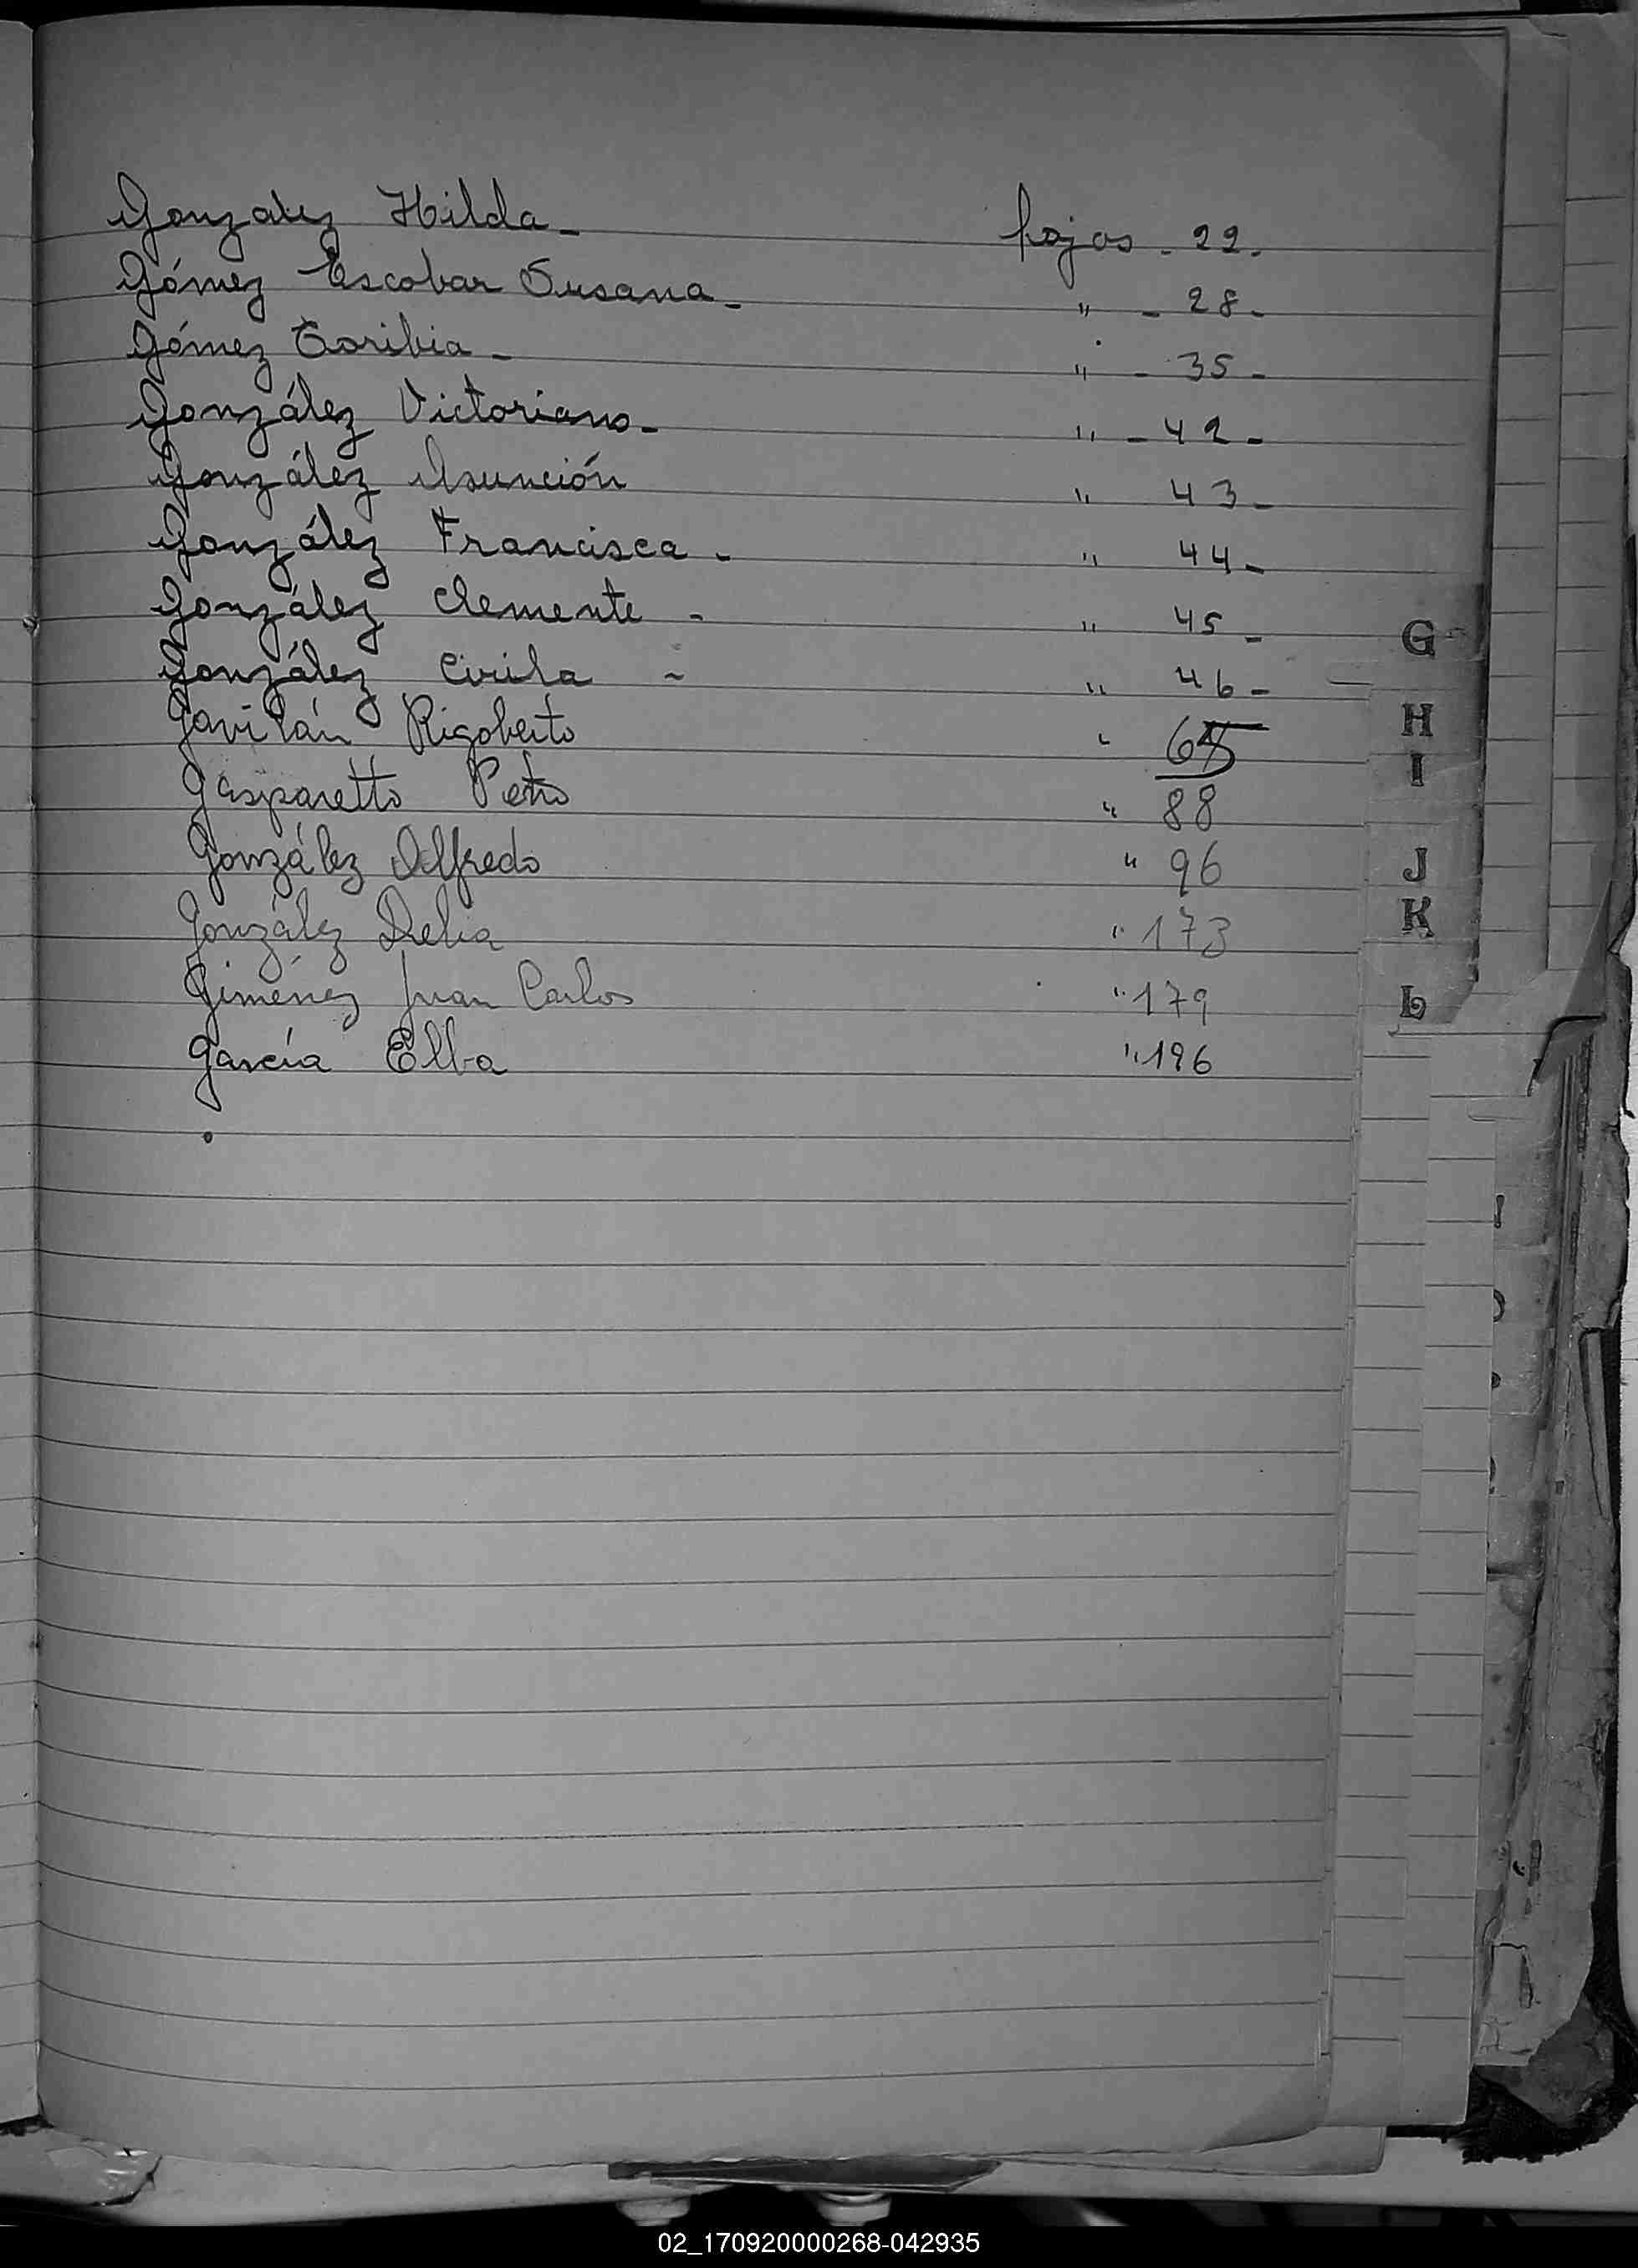 Gonzalez Hilda - fojas - 22.
Gómez Escobar Susana - " - 28 -
Gómez Toribia - " - 35 -
González Victoriano - " - 42 -
González Asunción " 43 -
González Francisca - " 44 -
González Clemente - " 45 -
González Cirila - " 46 -
Gavilán Rigoberto "
Gasparetto Petro " 88
González Alfredo " 96
González Delia " 173
Giménez Juan Carlos " 179
García Elba " 196
G
H
I
J
K
L
02_170920000268-042935